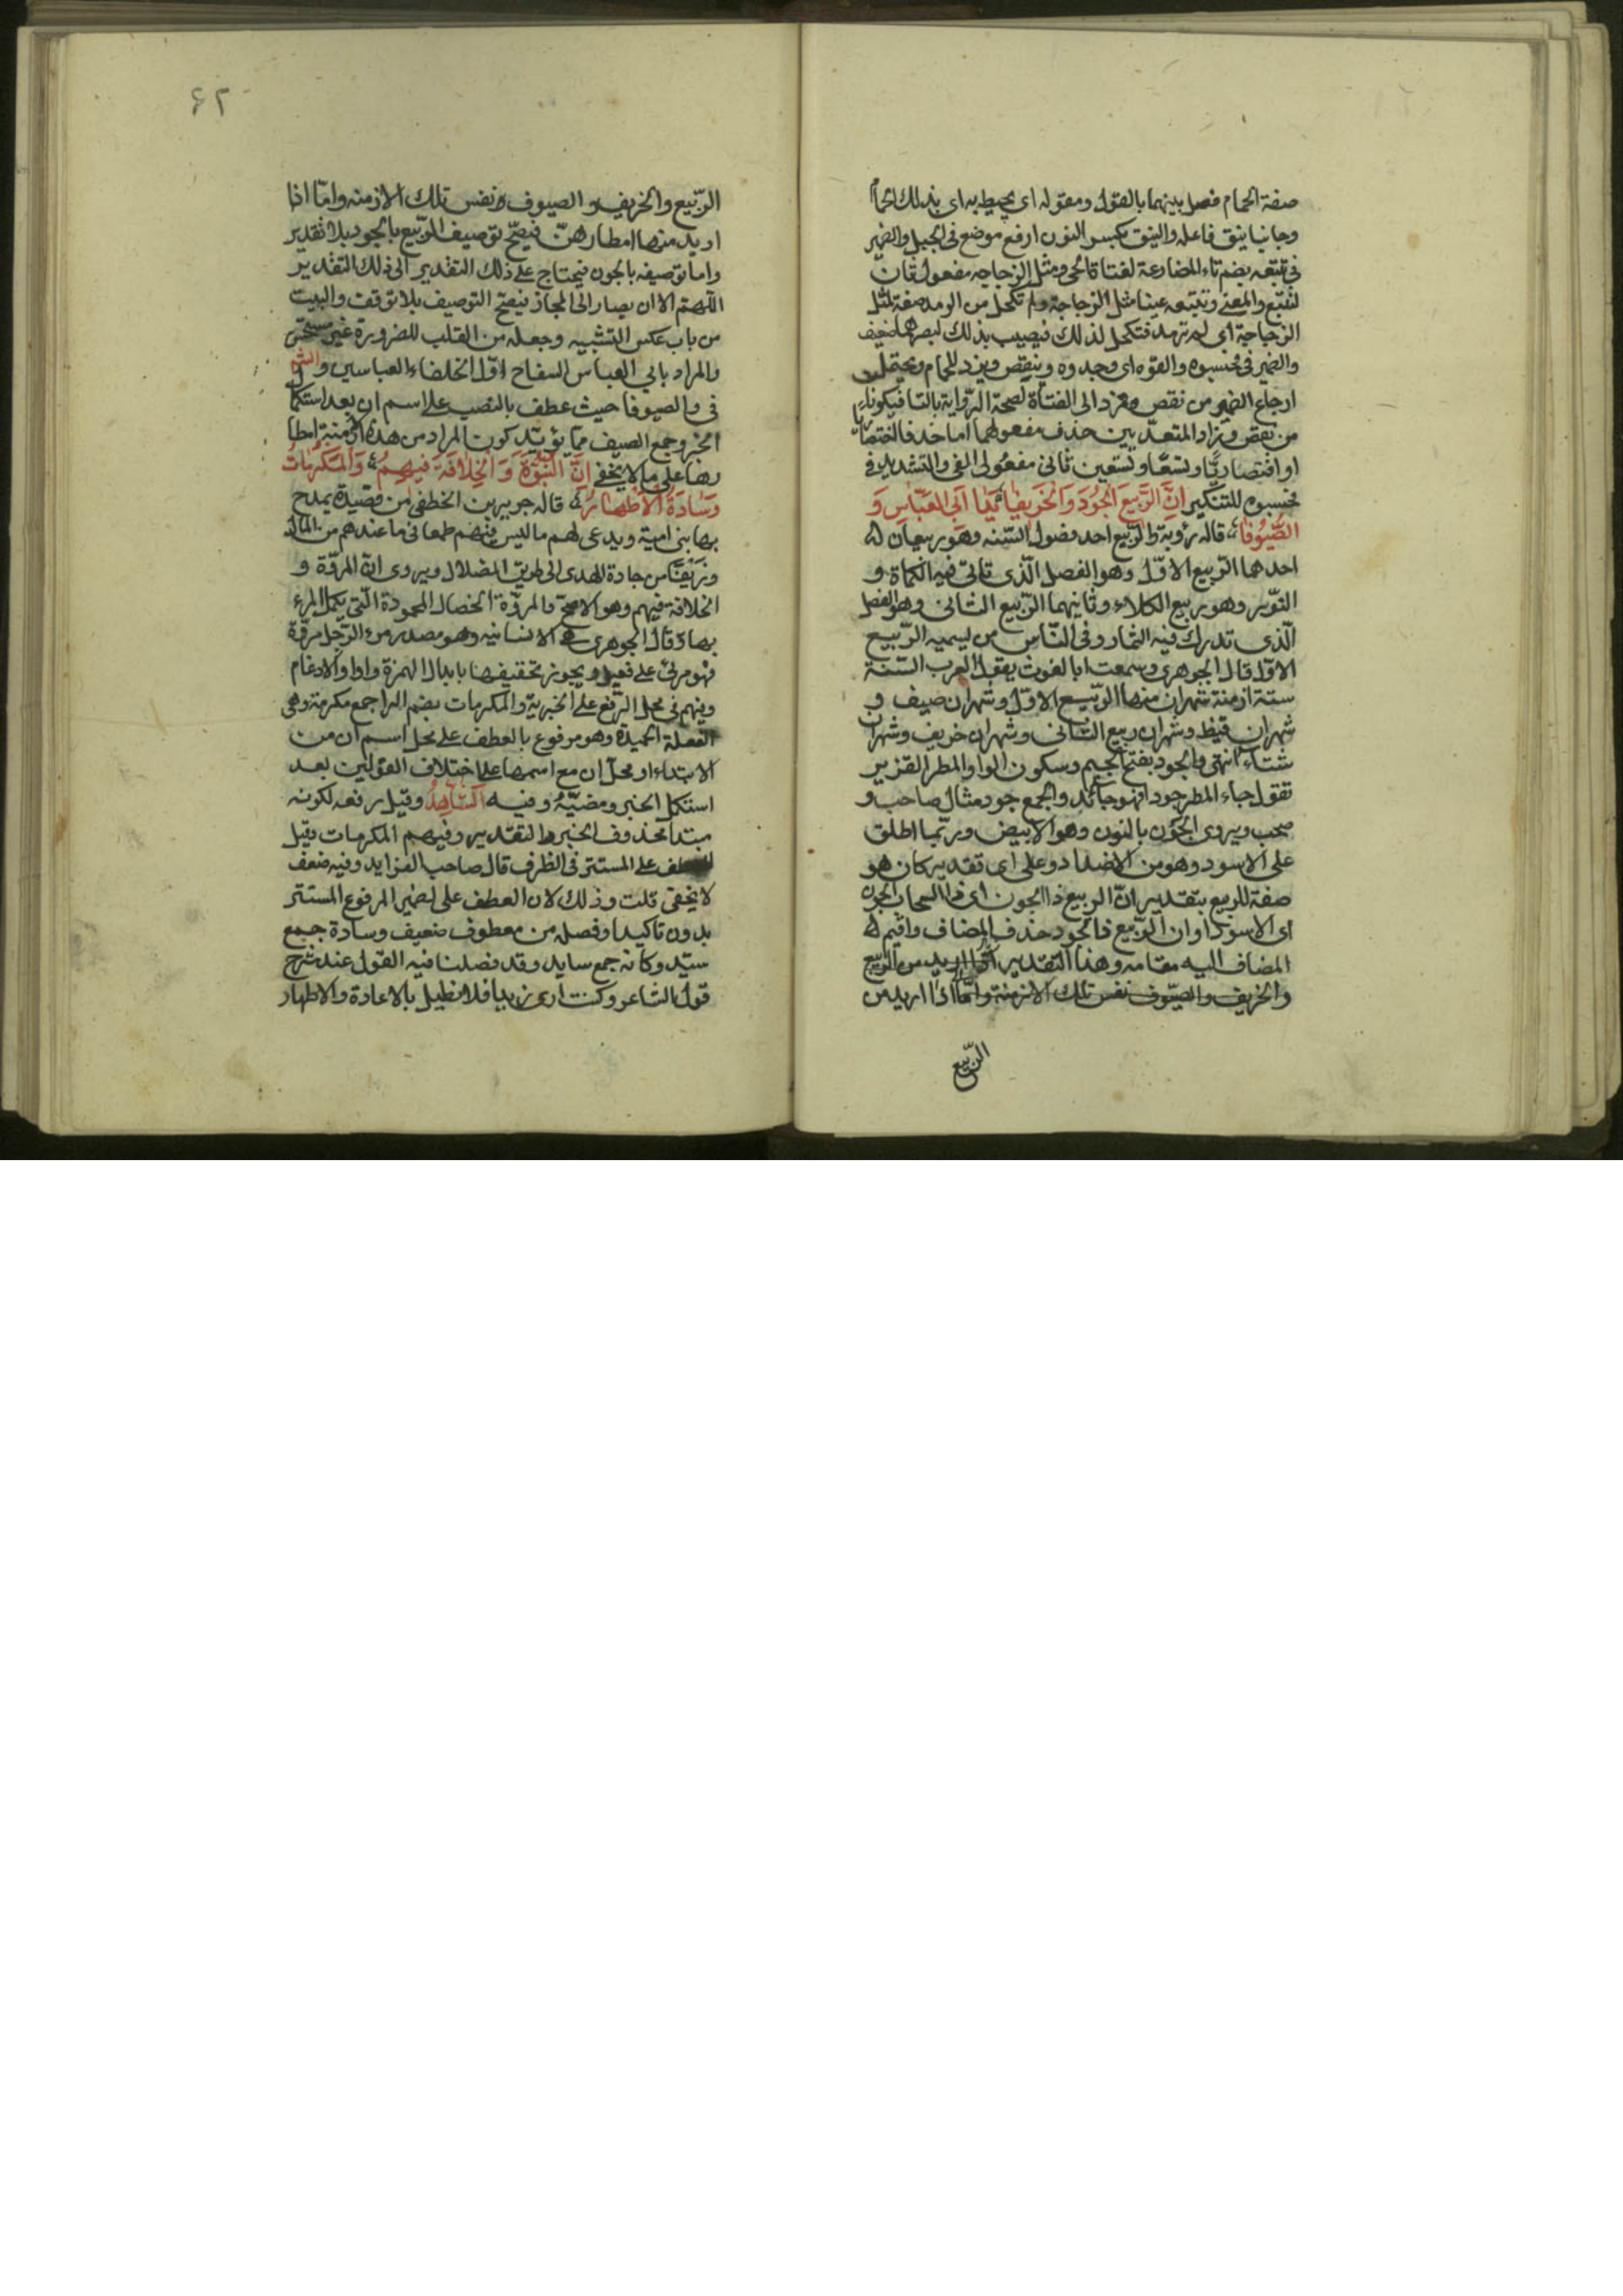 صفة الحمام فصل بينهما بالقول ومقوله اى يحيط به اى بذلك الحما
وجانبا نيق فاعله والنيق بكسر النون ارفع موضع فى الجبل والضمير
فى تتبعه بضم تاء المضارعة لفتاة الحى ومثل الزجاجه مفعول ثان
لتتبع والمعنى وتتبعه عينا مثل الزجاجة ولم تكحل من الرمد صفة لمثل
الزجاجة اى لم ترمد فتكحل لذلك فيصيب بذلك بصرها ضعف
والضمير فى فحسبوه والفوه اى وجدوه وينقص ويزد للحمام ويحتمل
ارجاع الضمير من نقص ويزد الى الفتاة لصحة الرواية بالتا فيكونا
من نقص وزاد المتعديين حذف مفعولهما اما حذفا اختصاريا
او اقتصاريا وتسعا وتسعين ثانى مفعولى الفى والتشديد فى
فحسبوه للتكثير اِنَّ الرَّبيعَ الجُودَ وَالخَريفَا؛ يَدَا اَبي العَبّاسِ وَ
الصُّيُوفا؛ قاله رؤبة والرّبيع احد فصول السّنه وهو ربيعان
احدهما الرّبيع الاوّل وهو الفصل الّذى تأتى فيه الكماة و
النّور وهو ربيع الكلاء وثانيهما الرّبيع الثانى وهو الفصل
الّذى تدرك فيه الثمار وفى النّاس من يسميه الرّبيع
الاوّل قال الجوهرى وسمعت ابا الغوث يقول العرب السّنة
ستة ازمنة شهران منها الرّبيع الاوّل وشهران صيف و
شهران قيظ وشهران ربيع الثانى وشهران خريف وشهران
شتاء انتهى والجود بفتح الجيم وسكون الواو المطر الغزير
تقول جاء المطر جودا فهو جائد والجمع جود مثال صاحب و
صحب ويروى الجون بالنون وهو الابيض وربّما اطلق
على الاسود وهو من الاضداد وعلى اى تقدير كان هو
صفة للربيع بتقدير انّ الربيع ذا الجون اى ذا السحاب الجون
اى الاسود او ان الرّبيع ذا الجود حذف المضاف واقيم
المضاف اليه مقامه وهذا التقدير اذا اريد من الرّبيع
والخريف والصّيوف نفس تلك الازمنة وامّا اذا اريد من
الرّبيع
۶۲
الرّبيع والخريف والصيوف نفس تلك الازمنه وامّا اذا
اريد منها امطارهنّ فيصحّ توصيف الرّبيع بالجود بلا تقدير
واما توصيفه بالجون فيحتاج على ذلك التقدير الى ذلك التقدير
اللّهم الا ان يصار الى المجاز فيصح التوصيف بلا توقف والبيت
من باب عكس التشبيه وجعله من القلب للضرورة غير مستحسن
والمراد بابي العباس السفاح اوّل الخلفاء العباسيين والشا
فى والصيوفا حيث عطف بالنصب على اسم ان بعد استكما
الخبر وجمع الصيف ممّا يؤيّد كون المراد من هذه الازمنة امطا
رها على ما لا يخفى اِنَّ النُّبُوَّةَ وَالخِلافَةَ فيهِمُ؛ وَالمَكْرُماتُ
وَسادَةُ الاَطْهارُ؛ قاله جرير بن الخطفى من قصيدة يمدح
بها بنى امية ويدعى لهم ما ليس فيهم طمعا فى ما عندهم من المال
وزيفا من جادة الهدى الى طريق الضلال ويروى انّ المروّة و
الخلافة فيهم وهو الاصحّ والمروّة الخصال المحمودة الّتى يكمل المرء
بها وقال الجوهرى هى الانسانيه وهو مصدر مرء الرّجل مروّة
فهو مرئ على فعيل ويجوز تخفيفها بابدال الهمزة واوا والادغام
وفيهم فى محل الرّفع على الخبرية والمكرمات بضم الراء جمع مكرمة وهى
الفعلة الحميدة وهو مرفوع بالعطف على محل اسم ان من
الابتداء او محل ان مع اسمها على اختلاف القولين بعد
استكمال الخبر ومضيّه وفيه الشّاهدُ وقيل رفعه لكونه
مبتدأ محذوف الخبر والتقدير وفيهم المكرمات وقيل
على المستتر فى الظرف قال صاحب الفرايد وفيه ضعف
لا يخفى قلت وذلك لان العطف على الضمير المرفوع المستتر
بدون تاكيد او فصل من معطوف ضعيف وسادة جمع
سيّد وكانه جمع سايد وقد فصلنا فيه القول عند شرح
قول الشاعر وكنت ارى زيدا فلا نطيل بالاعادة والاطهار